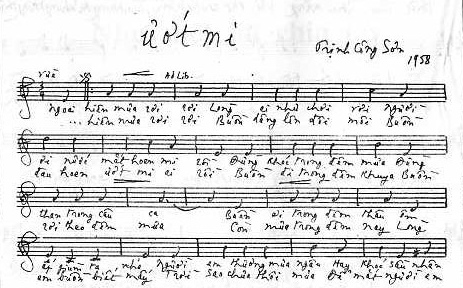 ướt mi
Trịnh Công Sơn
1958
vừa Ad Lib.
Ngoài hiên mưa rơi rơi Lòng ai như chơi vơi Người
... hiên mưa rơi rơi Buồn dâng lên đôi môi Buồn
ơi nước mắt hoen mi rồi Đừng khóc trong đêm mưa Đừng
đau hoen ướt mi ai rồi Buồn đi trong đêm khuya Buồn
than trong câu ca Buồn ơi trong đêm thâu ôm
rơi theo đêm mưa Còn mưa trong đêm nay Lòng
ấp giùm ta nhé Người em thương mưa ngâu Hay khóc sầu nhân
em buồn biết mấy Trời sao chưa thôi mưa Để mắt người em